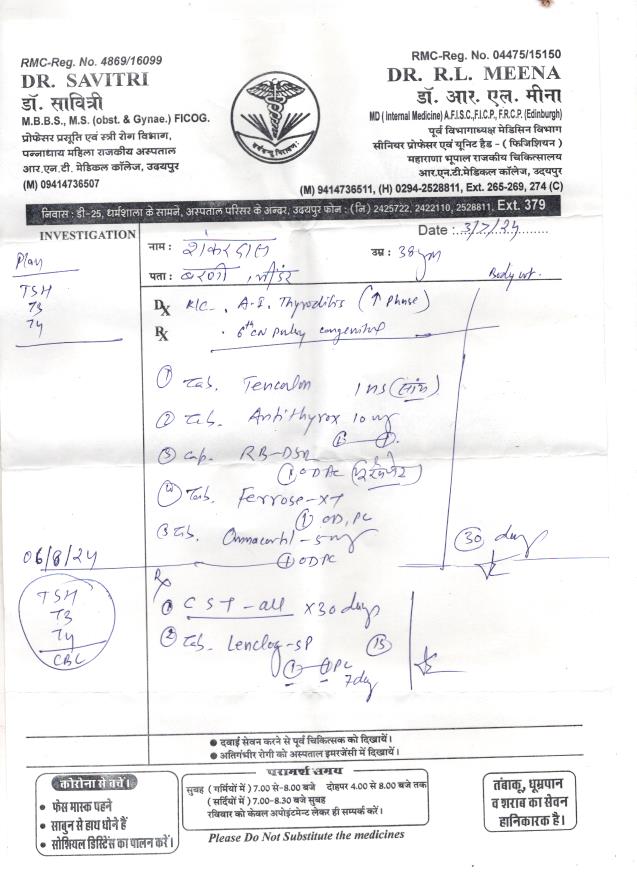 RMC-Reg. No. 4869/16099
DR. SAVITRI
डॉ. सावित्री
M.B.B.S., M.S. (obst. & Gynae.) FICOG.
प्रोफेसर प्रसूति एवं स्त्री रोग विभाग,
पन्नाधाय महिला राजकीय अस्पताल
आर.एन.टी. मेडिकल कॉलेज, उदयपुर
(M) 09414736507
RMC-Reg. No. 04475/15150
DR. R.L. MEENA
डॉ. आर. एल. मीना
MD ( Internal Medicine) A.F.I.S.C.,F.I.C.P., F.R.C.P. (Edinburgh)
पूर्व विभागाध्यक्ष मेडिसिन विभाग
सीनियर प्रोफेसर एवं यूनिट हैड - ( फिजिशियन )
महाराणा भूपाल राजकीय चिकित्सालय
आर.एन.टी.मेडिकल कॉलेज, उदयपुर
(M) 9414736511, (H) 0294-2528811, Ext. 265-269, 274 (C)
निवास : डी-25, धर्मशाला के सामने, अस्पताल परिसर के अन्दर, उदयपुर फोन : (नि) 2425722, 2422110, 2528811, Ext. 379
INVESTIGATION
Date : 3/7/24
नाम : शंकरदास
उम्र : 38 ym
पता :
Body wt.
Plan
TSH
T3
T4
Dx K/C. A.I. Thyroditis (↑ Phase)
Rx 6th CN congenital
① Tab.
② Tab. Antithyrox 10 mg
①—①
③ Cap. RB-DSR
① OD AC
④ Tab. Ferrose-XT
① OD, PC
⑤ Tab. Omnacortil-5 mg
① OD PC
30 days
06/8/24
TSH
T3
T4
CBC
Rx
① CST-all x 30 days
② Tab. -SP
①—① PC
7 day
15
● दवाई सेवन करने से पूर्व चिकित्सक को दिखायें।
● अतिगंभीर रोगी को अस्पताल इमरजेंसी में दिखायें।
कोरोना से बचें।
● फेस मास्क पहने
● साबुन से हाथ धोने हैं
● सोशियल डिस्टेंस का पालन करें।
परामर्श समय
सुबह ( गर्मियों में ) 7.00 से-8.00 बजे दोहपर 4.00 से 8.00 बजे तक
( सर्दियों में ) 7.00-8.30 बजे सुबह
रविवार को केवल अपोइंटमेन्ट लेकर ही सम्पर्क करें।
Please Do Not Substitute the medicines
तंबाकू, धूम्रपान
व शराब का सेवन
हानिकारक है।